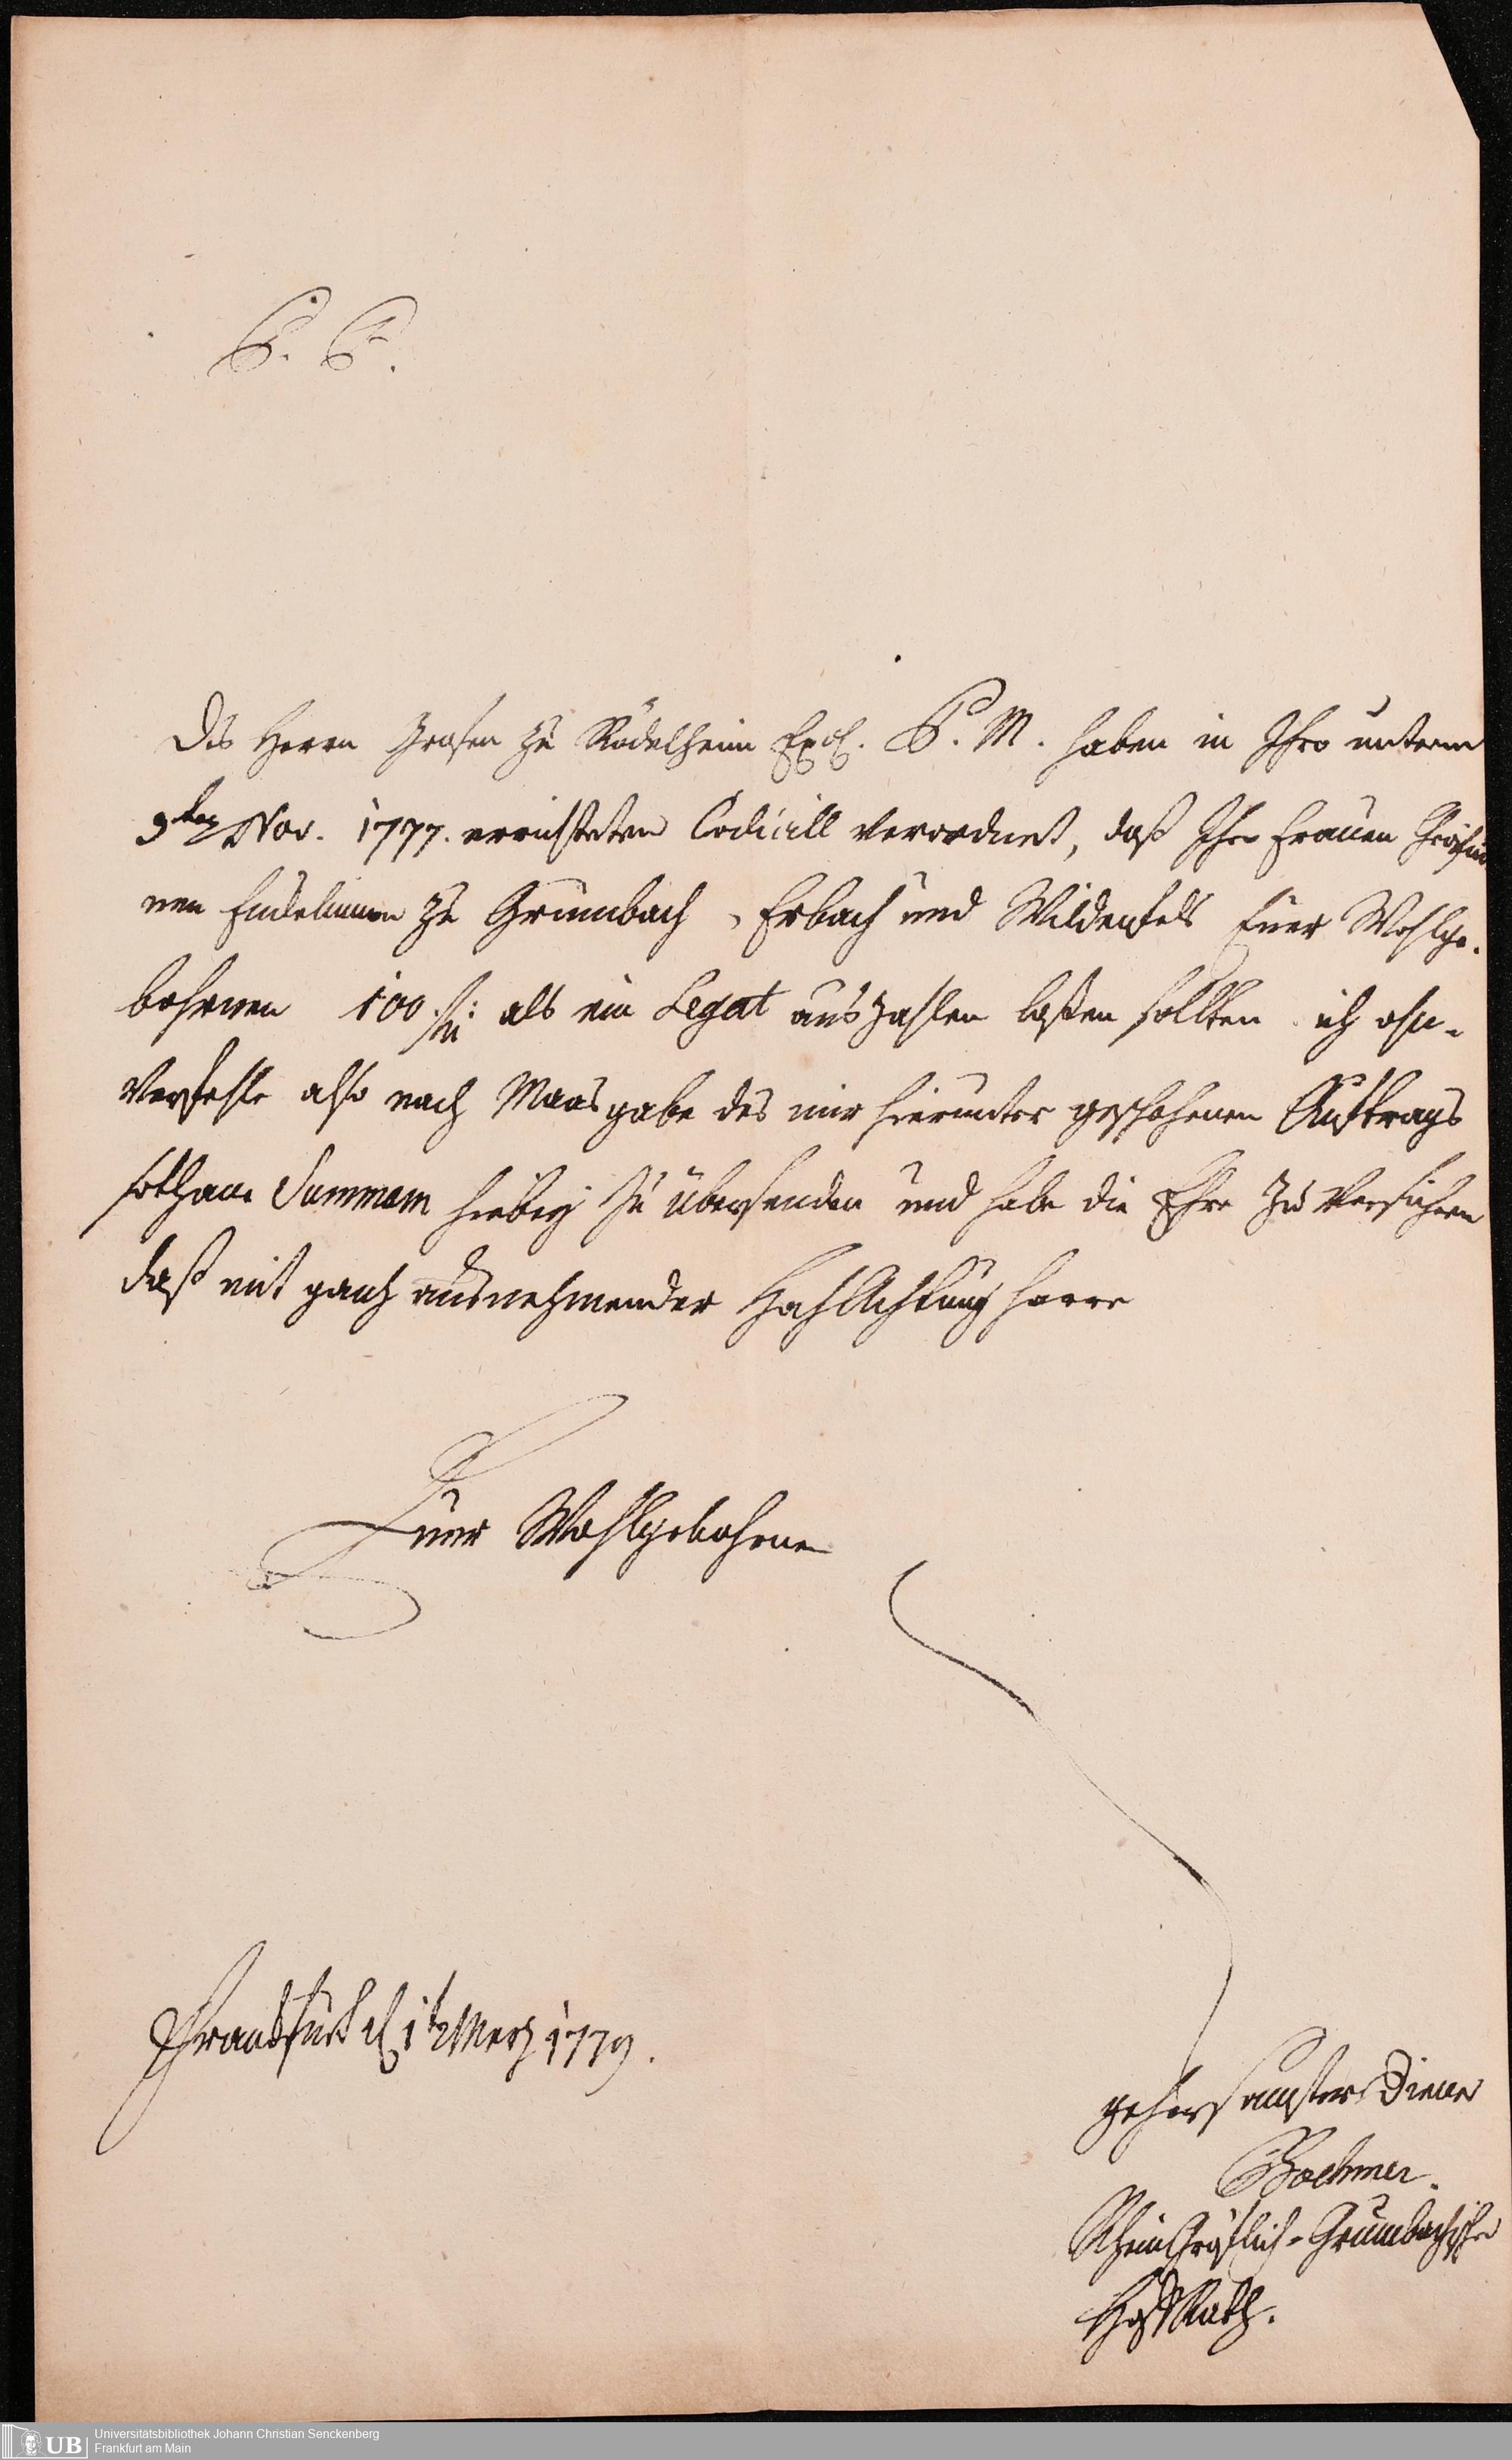 P. P.
Des Herrn Grafen zu Rödelheim Exc. P. M. haben in Ihro unterm
9ten Nov. 1777. errichteten Codicill verordnet, daß Ihre Frauen Gräfin
nen Enckelinnen zu Grumbach, Erbach und Wildenfels Euer Wohlge-
bohrnen 100 als ein Legat auszahlen laßen sollten ich ohn-
verfehle also nach Maasgabe des mir hierunter geschehenen Auftrags
sothane Summam hiebey zu übersenden und habe die Ehre zu versichern
daß mit gantz ausnehmender HochAchtung harre
Euer Wohlgebohrnen
Franckfurt d 1t Merz 1779.
gehorsamster Diener
Boehmer.
RheinGräflich-Grumbachischer
HofRath.
UB Universitätsbibliothek Johann Christian Senckenberg
Frankfurt am Main